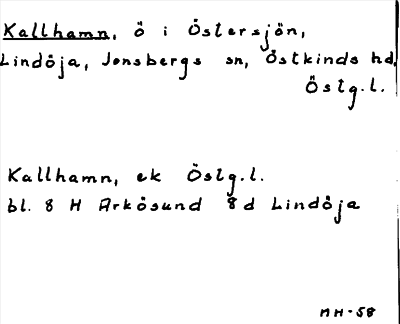 Kallhamn, ö i Östersjön,
Lindöja, Jonsbergs sn, Östkinds hd,
Östg.l.
Kallhamn, ek Östg.l.
bl. 8 H Arkösund 8d Lindöja
MH-58